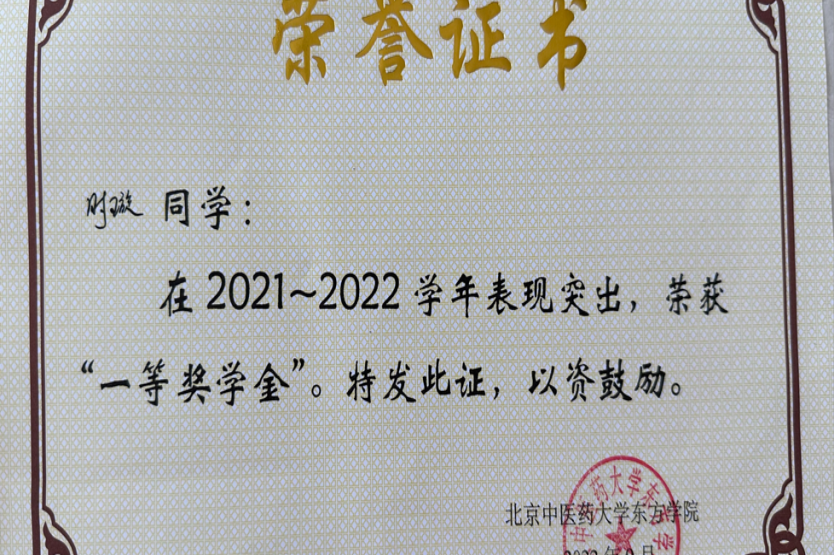 荣誉证书
时璇 同学：
在2021~2022学年表现突出，荣获
“一等奖学金”。特发此证，以资鼓励。
北京中医药大学东方学院